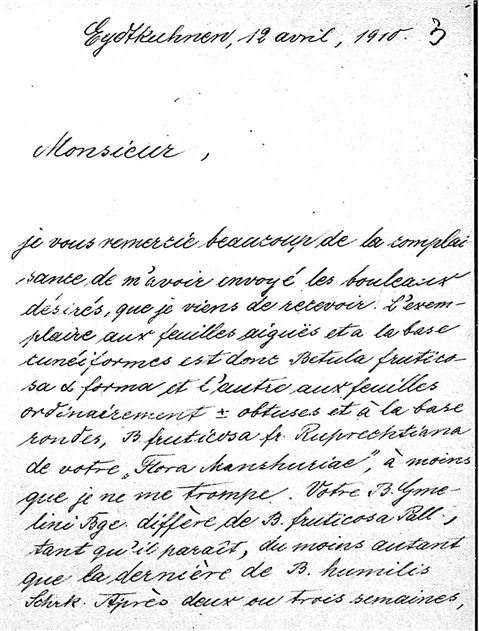 Eydtkuhnen, 12 avril, 1910. 3
Monsieur,
je vous remercie beaucoup de la complai
sance, de m'avoir envoyé les bouleaux
désirés, que je viens de recevoir. L'exem-
plaire aux feuilles aiguës et a la base
cunéiformes est donc Betula frutico-
sa α forma et l'autre aux feuilles
ordinairement ± obtuses et à la base
rondes, B. fruticosa fr. Ruprechtiana
de votre „Flora Manshuriae", à moins
que je ne me trompe. Votre B. Gme-
lini Bge. diffère de B. fruticosa Pall.,
tant qu'il paraît, du moins autant
que la dernière de B. humilis
Schrk. Après deux ou trois semaines,